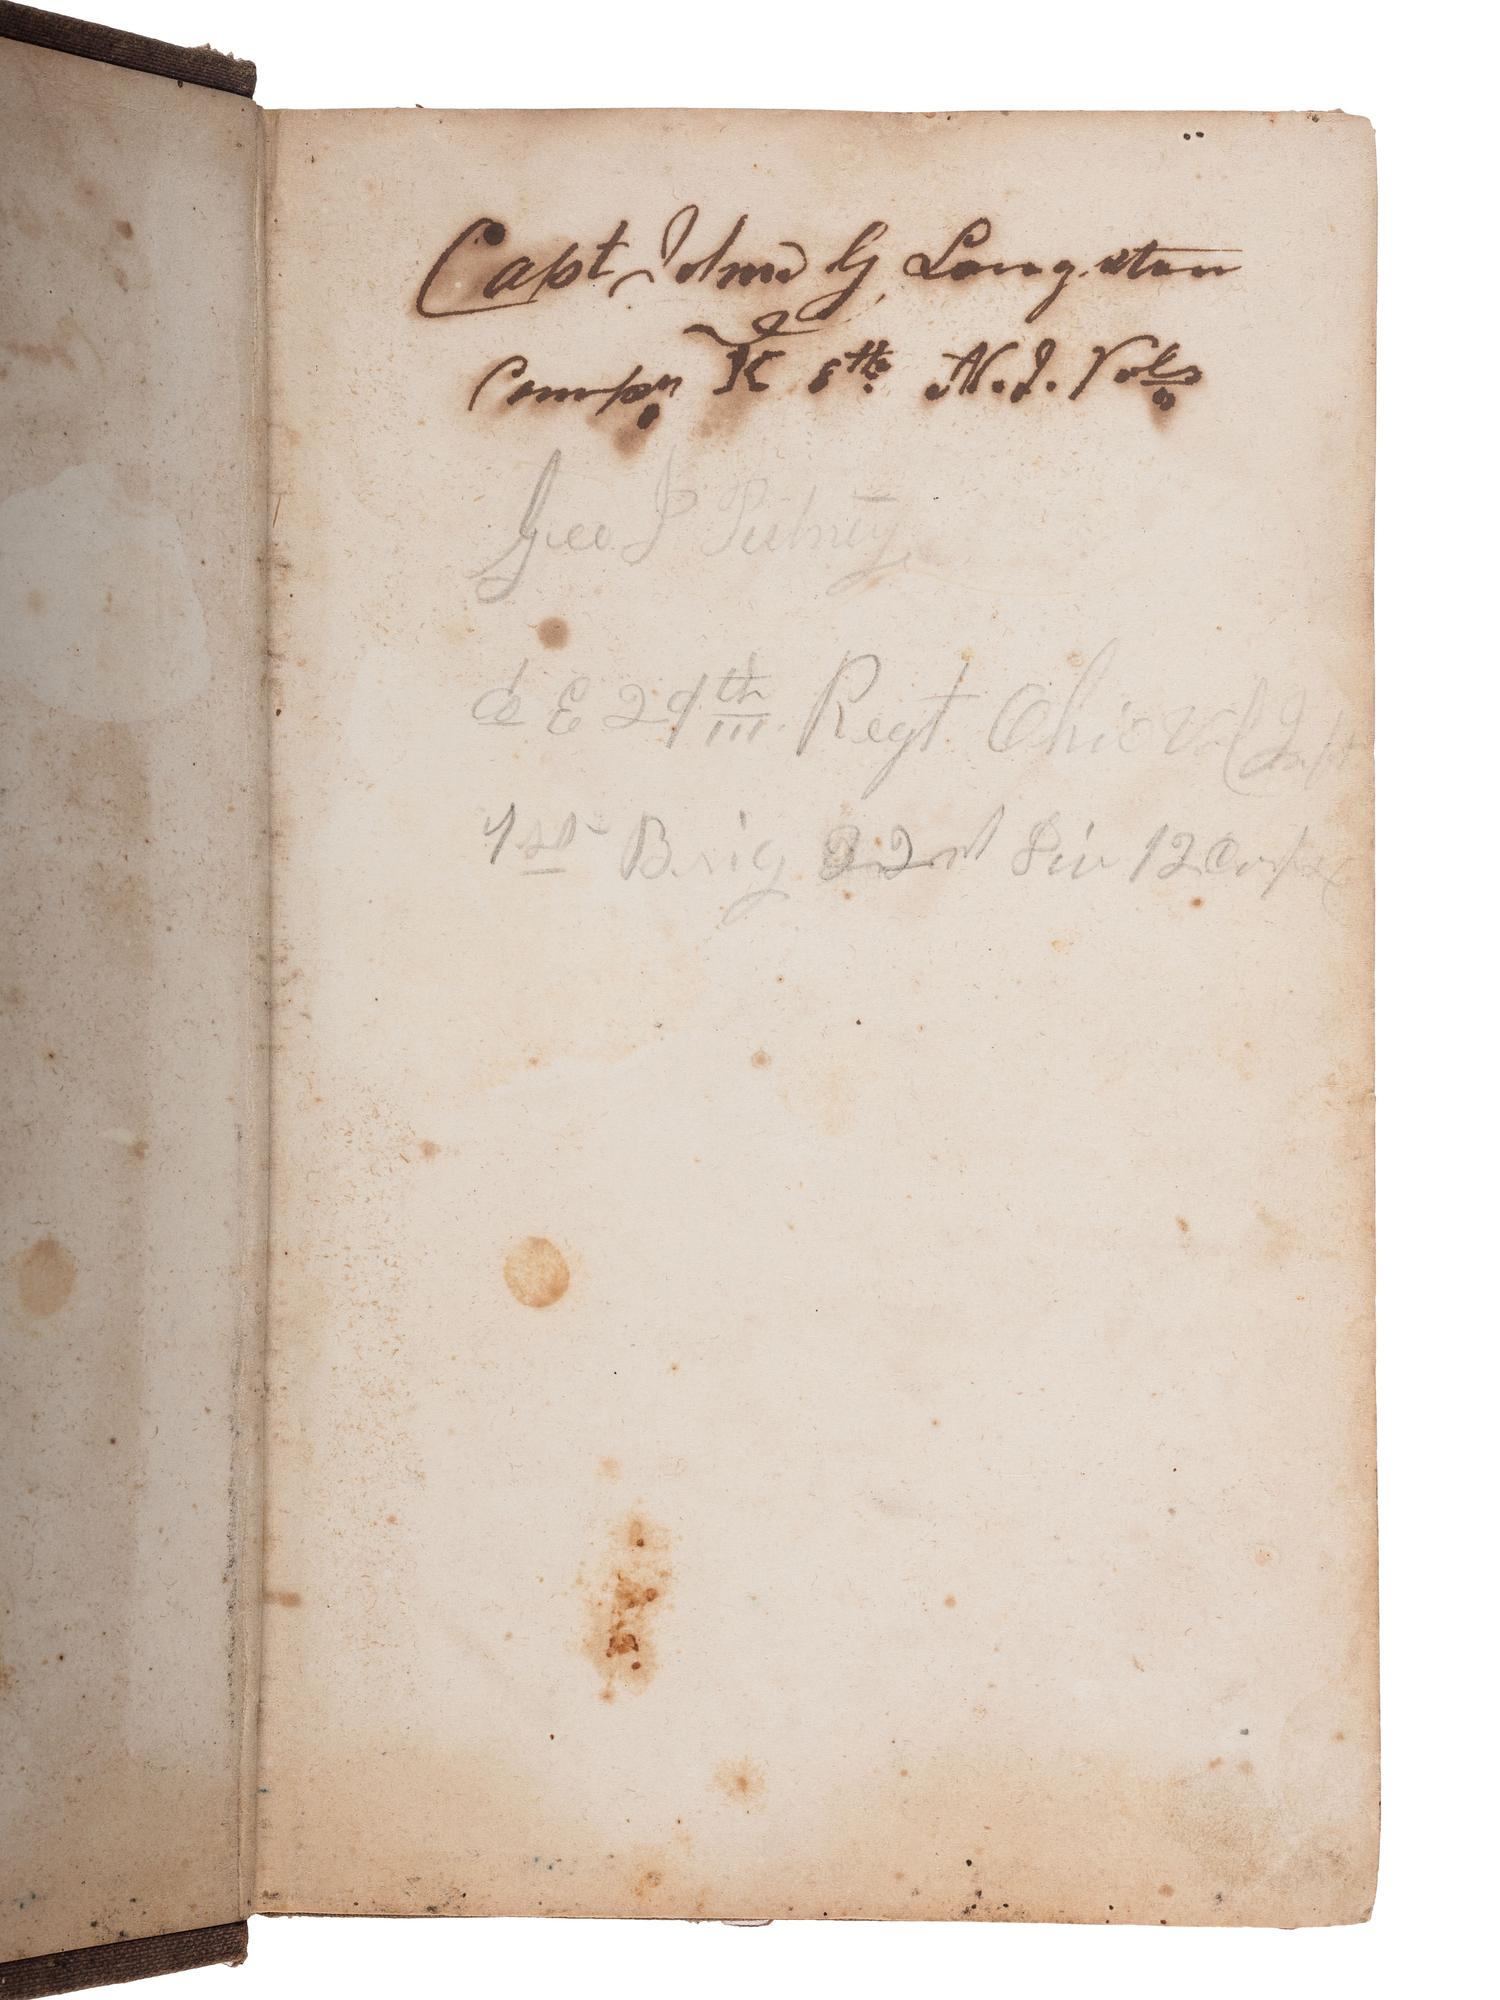 Capt John G Langston
Compn K 8th N.J. Vols
Geo P Putney
Co E 29th Regt Ohio Vol Inft
1st Brig 2nd Div 12 Corps